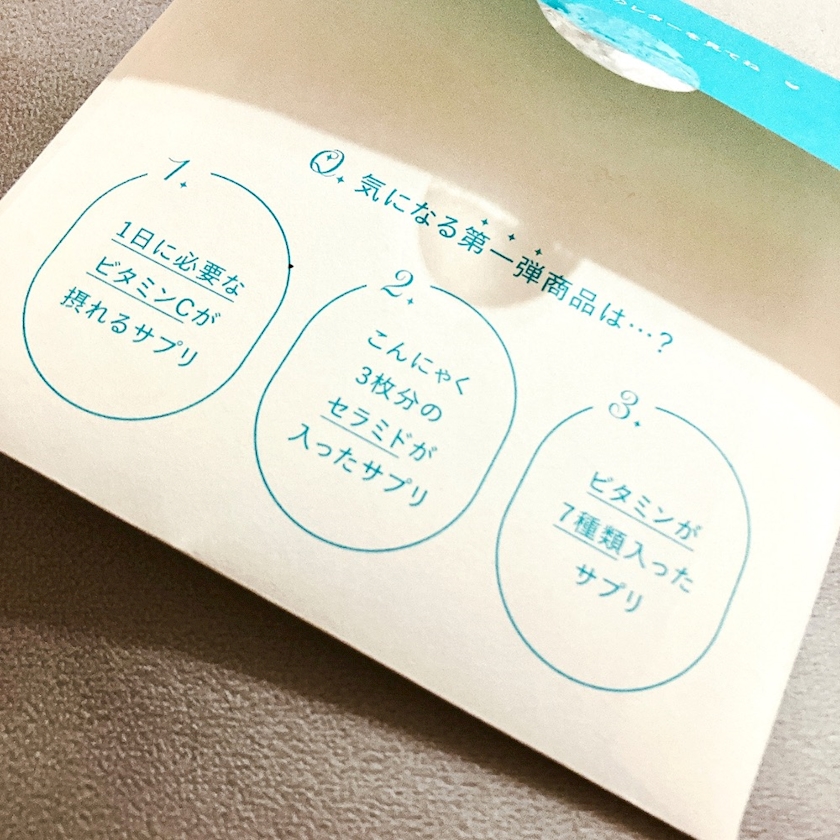 Q. 気になる第一弾商品は…?
1.
1日に必要な
ビタミンCが
摂れるサプリ
2.
こんにゃく
3枚分の
セラミドが
入ったサプリ
3.
ビタミンが
7種類入った
サプリ